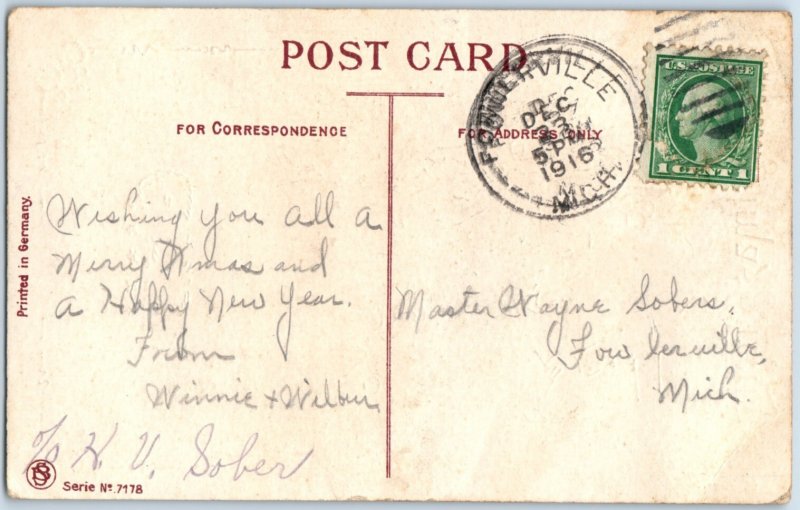 POST CARD
FOR CORRESPONDENCE
FOR ADDRESS ONLY
FOWLERVILLE
DEC
5 PM
1916
MICH.
U.S. POSTAGE
1 CENT 1
Printed in Germany.
Wishing you all a
Merry Xmas and
a Happy New Year.
From
Winnie + Wilbur
c/o H. V. Sober
Master Wayne Sobers.
Fowlerville,
Mich.
Serie No. 7178